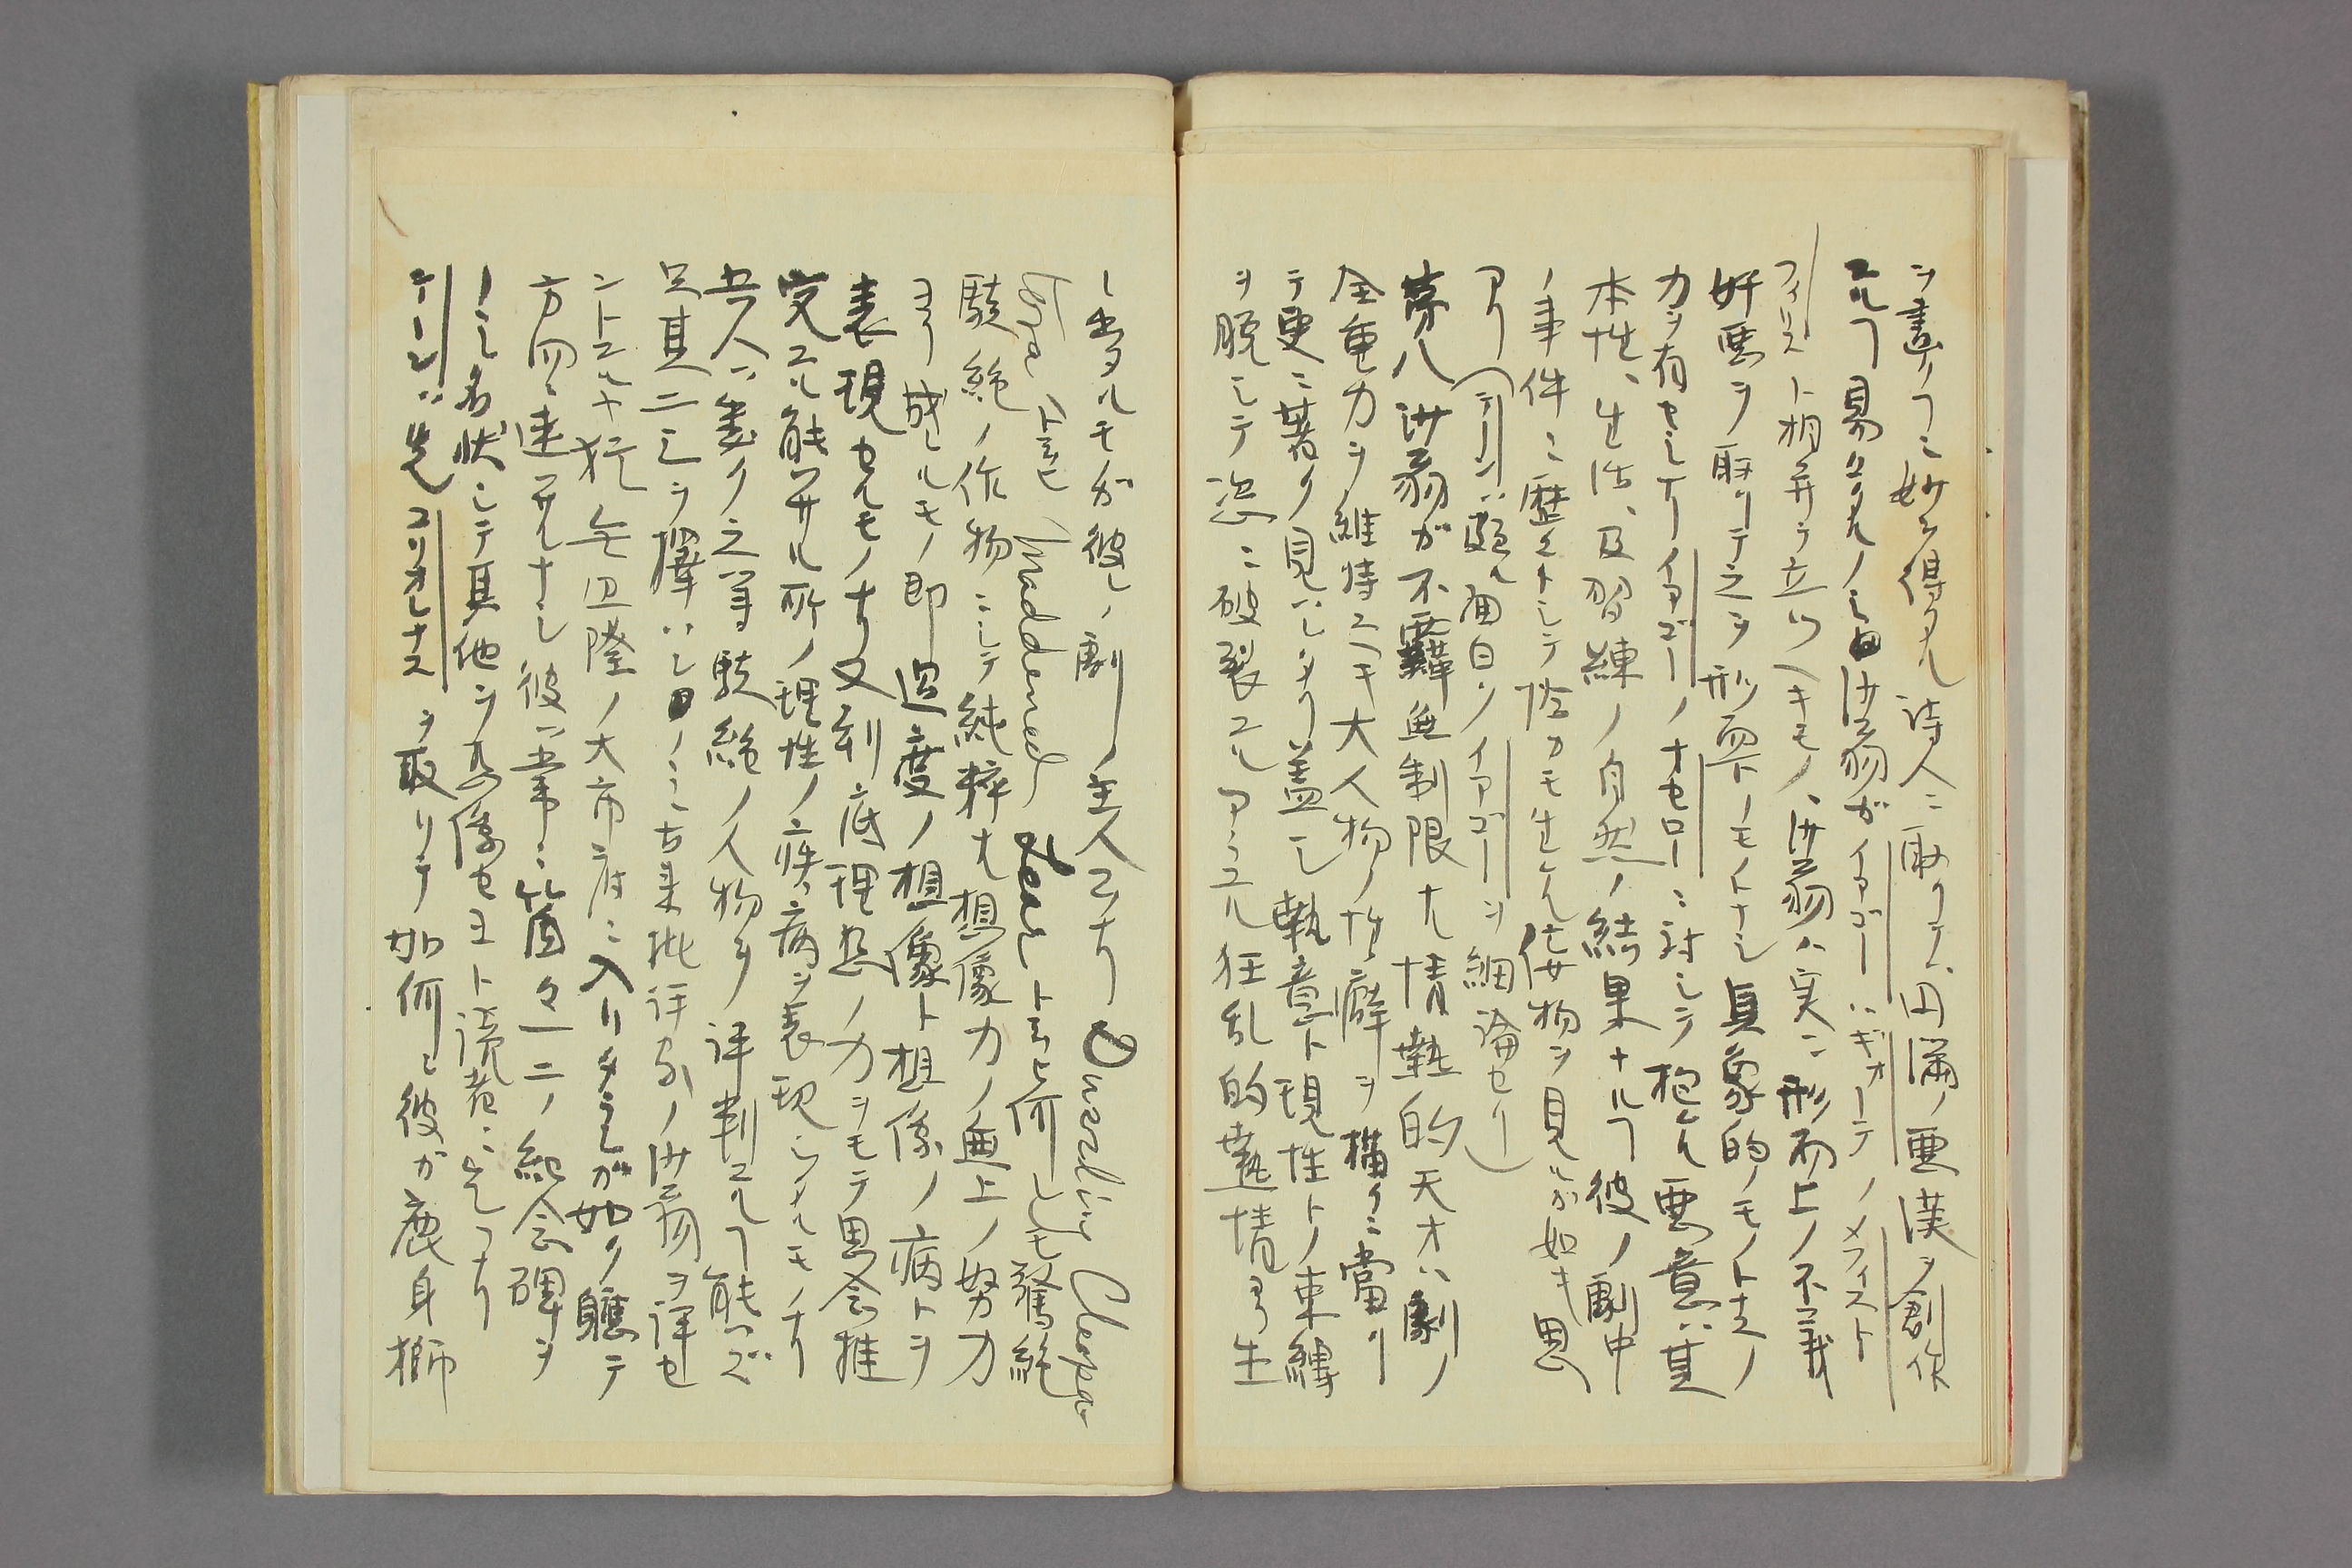 ヲ畫クフニ妙ヲ得タル詩人ニ取リテハ円滿ノ惡漢ヲ創作
スルフ易々タルノミ沙翁ガイアゴーハギオーテノメフィスト
フィリスト相并ヲ立ツベキモノ、沙翁ハ実ニ形而上ノ不義
奸惡ヲ取リテ之ヲ形而下ノモノトナシ眞象的ノモノトスノ
力ヲ有セシナリイアゴーノオセローニ対シテ抱ケル惡意ハ其
本性、生活、及習練ノ自然ノ結果ナルフ彼ノ劇中
ノ事件ニ歴々トシテ恰カモ生ケル人物ヲ見ルガ如キ思
アリ（テーンハ頗ル面白クイアゴーヲ細論セリ）
第八沙翁ガ不羈無制限ナ情熱的天才ハ劇ノ
全重力ヲ維持スベキ大人物ノ性癖ヲ描クニ當リ
テ更ニ著ク見ハレタリ蓋シ執意ト現性トノ束縛
ヲ脱シテ恣ニ破裂スルアラユル狂乱的熱情ヨリ生
レ出タルモガ彼レノ劇ノ主人公ナリ Othello Cleopa
tra ト云ヒ Maddened Lear ト云ヒ何レモ驚絶
駭絶ノ作物ニシテ純粋ナ想像力ノ無上ノ努力
ヨリ成レルモノ即過度ノ想像ト想像ノ病トヲ
表現セルモノナリ又到底理想ノ力ヲモテ思念推
究スル能ハザル所ノ理性ノ疾病ヲ表現シタルモノナリ
吾人ハ悉ク之等駭絶ノ人物ヲ評判スルフ能ハズ
只其二三ヲ擇ハンノミ古来批評家ノ沙翁ヲ評セ
ントスルヤ猶無辺際ノ大市府ニ入リタランガ如ク軈テ
方向ニ迷ハザルナシ彼一辈ニ箇々一二ノ紀念碑ヲ
ノミ名状シテ其他ヲ想像セヨト讀者ニ云フナリ
テーンハ先コリオレナスヲ取リテ如何ニ彼ガ鹿身獅